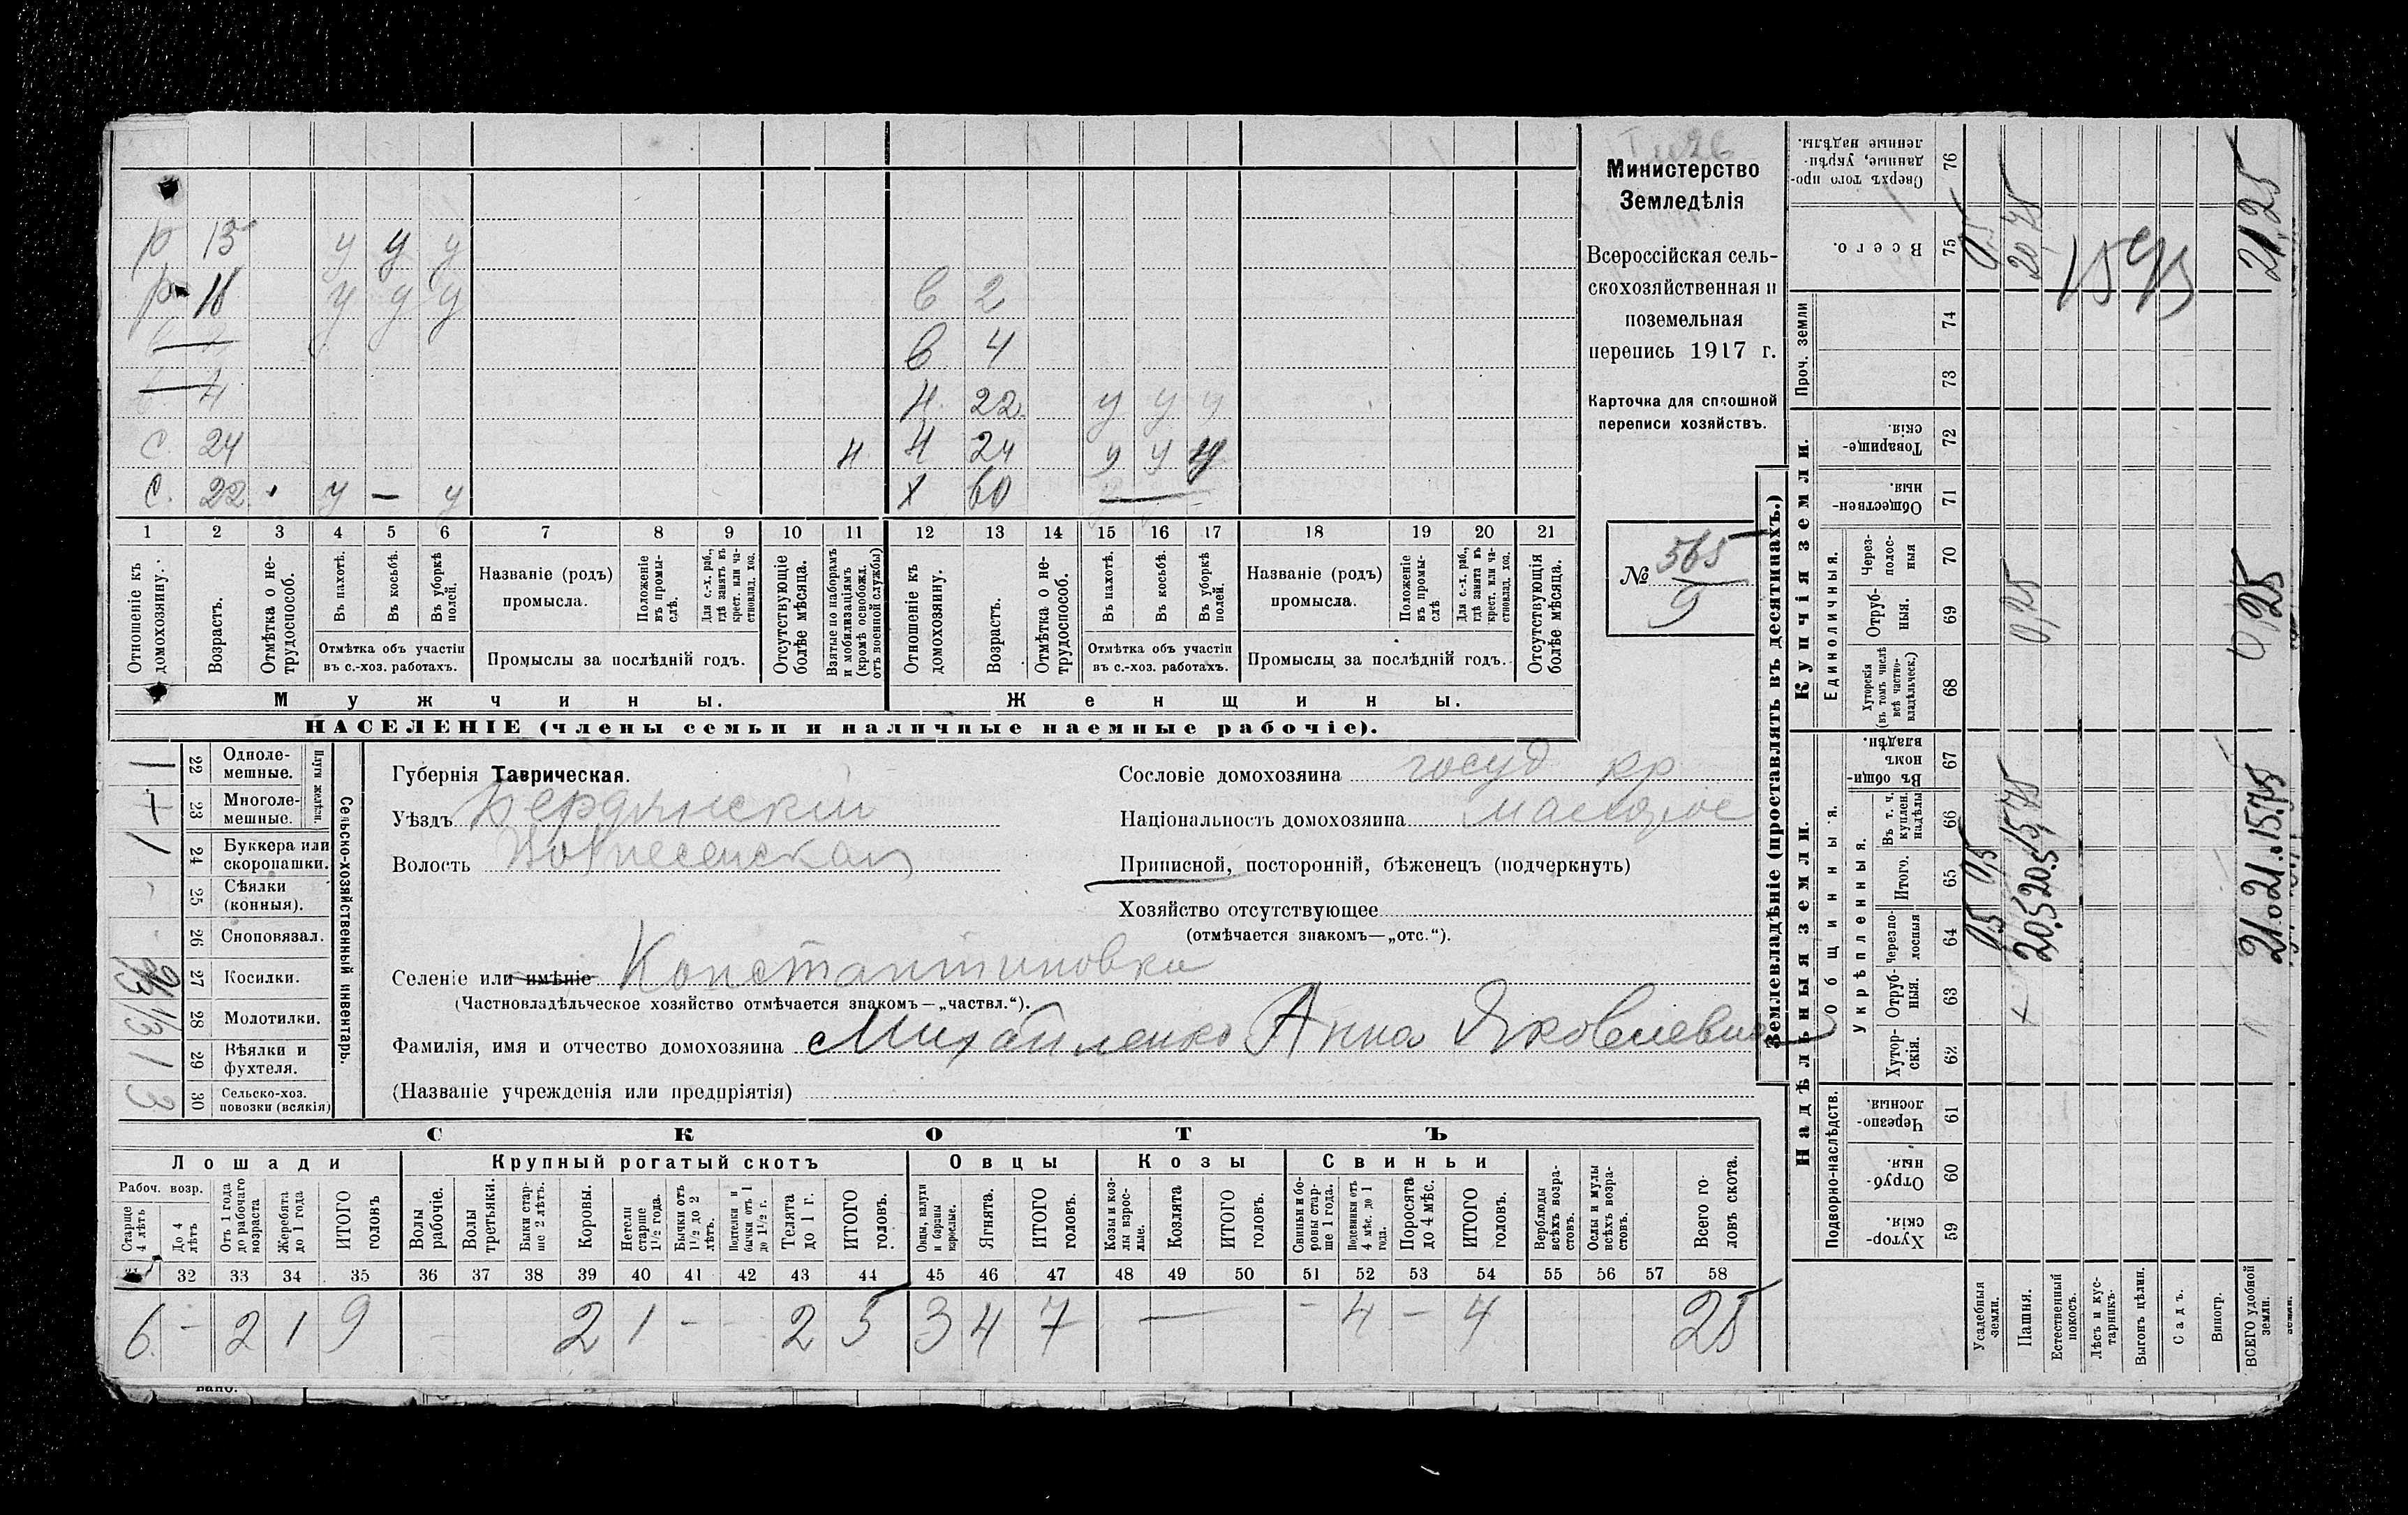 р 13 у у у
р 16 у у у в 2
в 4
4 Н. 22 у у у
С. 24 Н Н 24 у у у
С. 22 у — у Х 60 —
1 2 3 4 5 6 7 8 9 10 11 12 13 14 15 16 17 18 19 20 21
Отношеніе къ домохозяину.
Возрастъ.
Отмѣтка о нетрудоспособ.
Въ пахотѣ.
Въ косьбѣ.
Въ уборкѣ полей.
Отмѣтка объ участіи
въ с.-хоз. работахъ.
Названіе (родъ)
промысла.
Положеніе въ промыслѣ.
Для с.-х. раб., гдѣ занятъ въ крест. или частновлад. хоз.
Промыслы за послѣдній годъ.
Отсутствующіе болѣе мѣсяца.
Взятые по наборамъ и мобилизаціямъ (кромѣ освобожд. отъ военной службы)
Отношеніе къ домохозяину.
Возрастъ.
Отмѣтка о нетрудоспособ.
Въ пахотѣ.
Въ косьбѣ.
Въ уборкѣ полей.
Отмѣтка объ участіи
въ с.-хоз. работахъ.
Названіе (родъ)
промысла.
Положеніе въ промыслѣ
Для с.-х. раб., гдѣ занята въ крест. или частновлад. хоз.
Промыслы за послѣдній годъ.
Отсутствующія болѣе мѣсяца.
Мужчины. Женщины.
НАСЕЛЕНІЕ (члены семьи и наличные наемные рабочіе).
Министерство
Земледѣлія
Всероссійская сель-
скохозяйственная и
поземельная
перепись 1917 г.
Карточка для сплошной
переписи хозяйствъ.
№ 565
9
Сельско-хозяйственный инвентарь.
Плуги желѣзн.
1 22 Однолемешные.
+ 23 Многолемешные.
1 24 Буккера или скоропашки.
25 Сѣялки (конныя).
26 Сноповязал.
27 Косилки.
1/3 28 Молотилки.
1 29 Вѣялки и фухтеля.
3 30 Сельско-хоз. повозки (всякія)
Губернія Таврическая.
Уѣздъ Бердянскій
Волость Вознесенская
Сословіе домохозяина госуд кр
Національность домохозяина малорос
Приписной, посторонній, бѣженецъ (подчеркнуть)
Хозяйство отсутствующее
(отмѣчается знакомъ—„отс.“).
Селеніе или имѣніе Константиновка
(Частновладѣльческое хозяйство отмѣчается знакомъ—„частвл.“).
Фамилія, имя и отчество домохозяина Михайленко Анна Яковлевна
(Названіе учрежденія или предпріятія)
СКОТЪ
Лошади Крупный рогатый скотъ Овцы Козы Свиньи
Рабоч. возр.
Старше 4 лѣтъ
До 4 лѣтъ
Отъ 1 года до рабочаго возраста
Жеребята до 1 года
ИТОГО головъ
Волы рабочіе.
Волы третьяки.
Быки старше 2 лѣтъ.
Коровы.
Нетели старше 1 1/2 года.
Бычки отъ 1 1/2 до 2 лѣтъ.
Подтелки и бычки отъ 1 до 1 1/2 г.
Телята до 1 г.
ИТОГО головъ.
Овцы, валухи и бараны взрослые.
Ягнята.
ИТОГО головъ.
Козы и козлы взрослые.
Козлята
ИТОГО головъ.
Свиньи и боровы старше 1 года.
Подсвинки отъ 4 мѣс. до 1 года.
Поросята до 4 мѣс.
ИТОГО головъ.
Верблюды всѣхъ возрастовъ.
Ослы и мулы всѣхъ возрастовъ.
Всего головъ скота.
32 33 34 35 36 37 38 39 40 41 42 43 44 45 46 47 48 49 50 51 52 53 54 55 56 57 58
6 — 2 1 9 2 1 — 2 5 3 4 7 — — 4 — 4 25
Землевладѣніе (проставлять въ десятинахъ.)
Надѣльныя земли. Купчія земли.
Подворно-наслѣдств.
Общинныя.
Укрѣпленныя.
Единоличныя.
Проч. земли
Сверхъ того проданные, укрѣпленные надѣлы. 76
Всего. 75
74
73
Товарищескія. 72
Общественныя. 71
Черезполосныя 70
Отрубныя. 69
Хуторскія (въ томъ числѣ всѣ частновладѣльческ.) 68
Въ общинномъ владѣн. 67
Въ т. ч. куплен. надѣлы 66
Итого. 65
Черезполосныя 64
Отрубныя. 63
Хуторскія. 62
Черезполосныя. 61
Отрубныя. 60
Хуторскія. 59
Усадебныя земли. 0,5 0,5 0,5
Пашня. + 20,5 20,5 15,75 0,25 20,75
Естественный покосъ.
Лѣсъ и кустарникъ.
Выгонъ цѣлин.
Садъ.
Виногр.
ВСЕГО удобной земли. 21.0 21.0 15,75 0,25 21,25